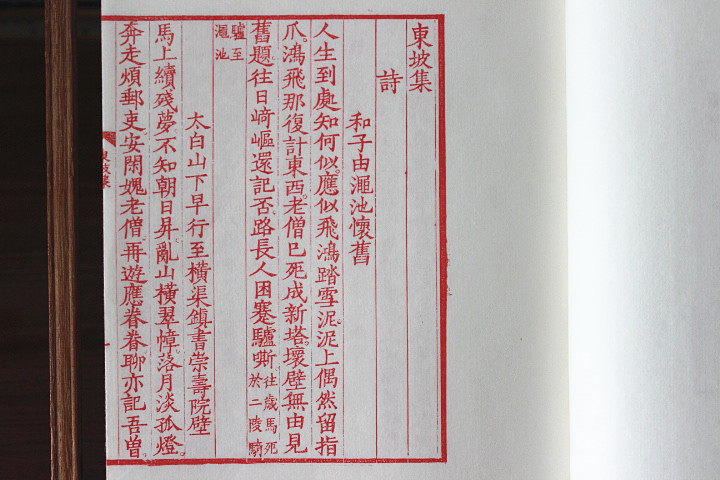 東坡集
詩
和子由澠池懷舊
人生到處知何似。應似飛鴻踏雪泥。泥上偶然留指
爪。鴻飛那復計東西。老僧已死成新塔。壞壁無由見
舊題。往日崎嶇還記否。路長人困蹇驢嘶。往歲馬死於二陵騎
驢至澠池
太白山下早行至橫渠鎮書崇壽院壁
馬上續殘夢。不知朝日昇。亂山橫翠幛。落月淡孤燈。
奔走煩郵吏。安閑愧老僧。再遊應眷眷。聊亦記吾曾。